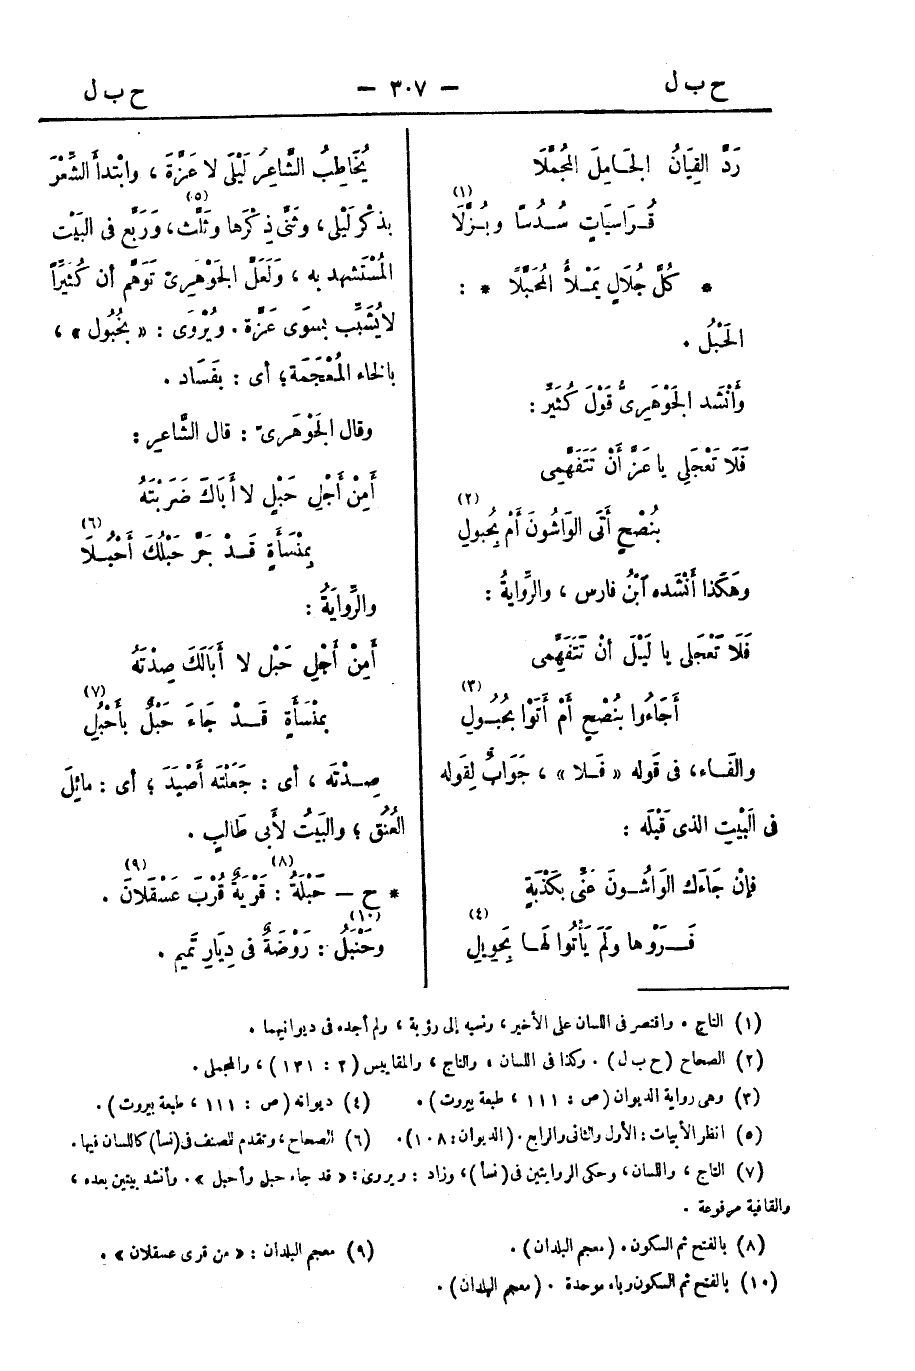 ح ب ل — ٣٠٧ — ح ب ل
رَدَّ القِيَانُ الجَامِلَ المُجَمَّلَا
قُرَاسِيَاتٍ سُدُسًا وبُزَّلَا (١)
* كُلَّ جُلَالٍ يَمْلأُ المُحَبَّلَا * :
الحَبْلُ .
وأَنْشَد الجَوْهَرِىُّ قَوْلَ كُثَيِّرٍ :
فَلَا تَعْجَلِى يا عَزَّ أَنْ تَتَفَهَّمِى
بنُصْحٍ أَتَى الوَاشُونَ أَمْ بِحُبولِ (٢)
وهَكَذا أَنْشَده ابْنُ فارس ، والرِّوايةُ :
فَلَا تَعْجَلِى يا لَيْلَ أَنْ تَتَفَهَّمِى
أَجَاءُوا بنُصْحٍ أَمْ أَتَوْا بحُبُولِ (٣)
والفَاء، فى قوله « فَلا » ، جَوَابٌ لِقَوله
فى البَيْتِ الذى قَبْلَه :
فإنْ جَاءَكِ الوَاشُونَ عَنِّى بكَذْبَةٍ
فَرَوْها ولَمْ يَأْتُوا لَها بِحَوِيلِ (٤)
يُخَاطِبُ الشَّاعِرُ لَيْلَى لا عَزَّةَ ، وابْتدأَ الشِّعْرَ
بذكْر لَيْلى ، وثَنَّى ذِكْرَها وثَلَّث (٥)، ورَبَّع فى البَيْت
المُسْتَشهد به ، ولَعَلَّ الجَوْهَرِىّ تَوَهَّم أن كُثَيِّرًا
لايُشَبِّب بسِوَى عَزَّة . ويُرْوَى : « بخُبُول » ،
بالخاء المُعْجَمَة ؛ أى : بفَسَاد .
وقال الجَوْهَرِىّ : قال الشَّاعِر :
أَمِنْ أَجْلِ حَبْلٍ لا أَبَاكَ ضَرَبْتَهُ
بِمِنْسَأَةٍ قَدْ جَرَّ حَبْلُكَ أَحْبُلَا (٦)
والرِّوَايَةُ :
أَمِنْ أَجْلِ حَبْلٍ لا أَبَالَكَ صِدْتَهُ
بِمنْسَأَةٍ قَدْ جَاءَ حَبْلٌ بأَحْبُلِ (٧)
صِدْتَه ، أى : جَعَلْتَه أَصْيَدَ ؛ أى : مائِلَ
العُنُق ؛ والبَيْتُ لأَبى طَالبٍ .
* ح — حَبْلَةُ (٨) : قَرْيَةٌ قُرْبَ عَسْقَلانَ (٩) .
وحَنْبَلُ (١٠) : رَوْضَةٌ فى دِيَارِ تَمِيم .
(١) التاج . واقتصر فى اللسان على الأخير ، ونسبه إلى رؤبة ، ولم أجده فى ديوانيهما .
(٢) الصحاح (ح ب ل) . وكذا فى اللسان ، والتاج ، والمقاييس (٢ : ١٣١) ، والمجمل .
(٣) وهى رواية الديوان (ص : ١١١ ، طبعة بيروت) . (٤) ديوانه (ص : ١١١ ، طبعة بيروت) .
(٥) انظر الأبيات : الأول والثانى والرابع . (الديوان : ١٠٨) . (٦) الصحاح ، وتقدم للمصنف فى (نسأ) كاللسان فيها .
(٧) التاج ، واللسان ، وحكى الروايتين فى (نسأ) ، وزاد : ويروى : « قد جاء حبل وأحبل » . وأنشد بيتين بعده ،
والقافية مرفوعة .
(٨) بالفتح ثم السكون . (معجم البلدان) . (٩) معجم البلدان : « من قرى عسقلان » .
(١٠) بالفتح ثم السكون وباء موحدة . (معجم البلدان) .